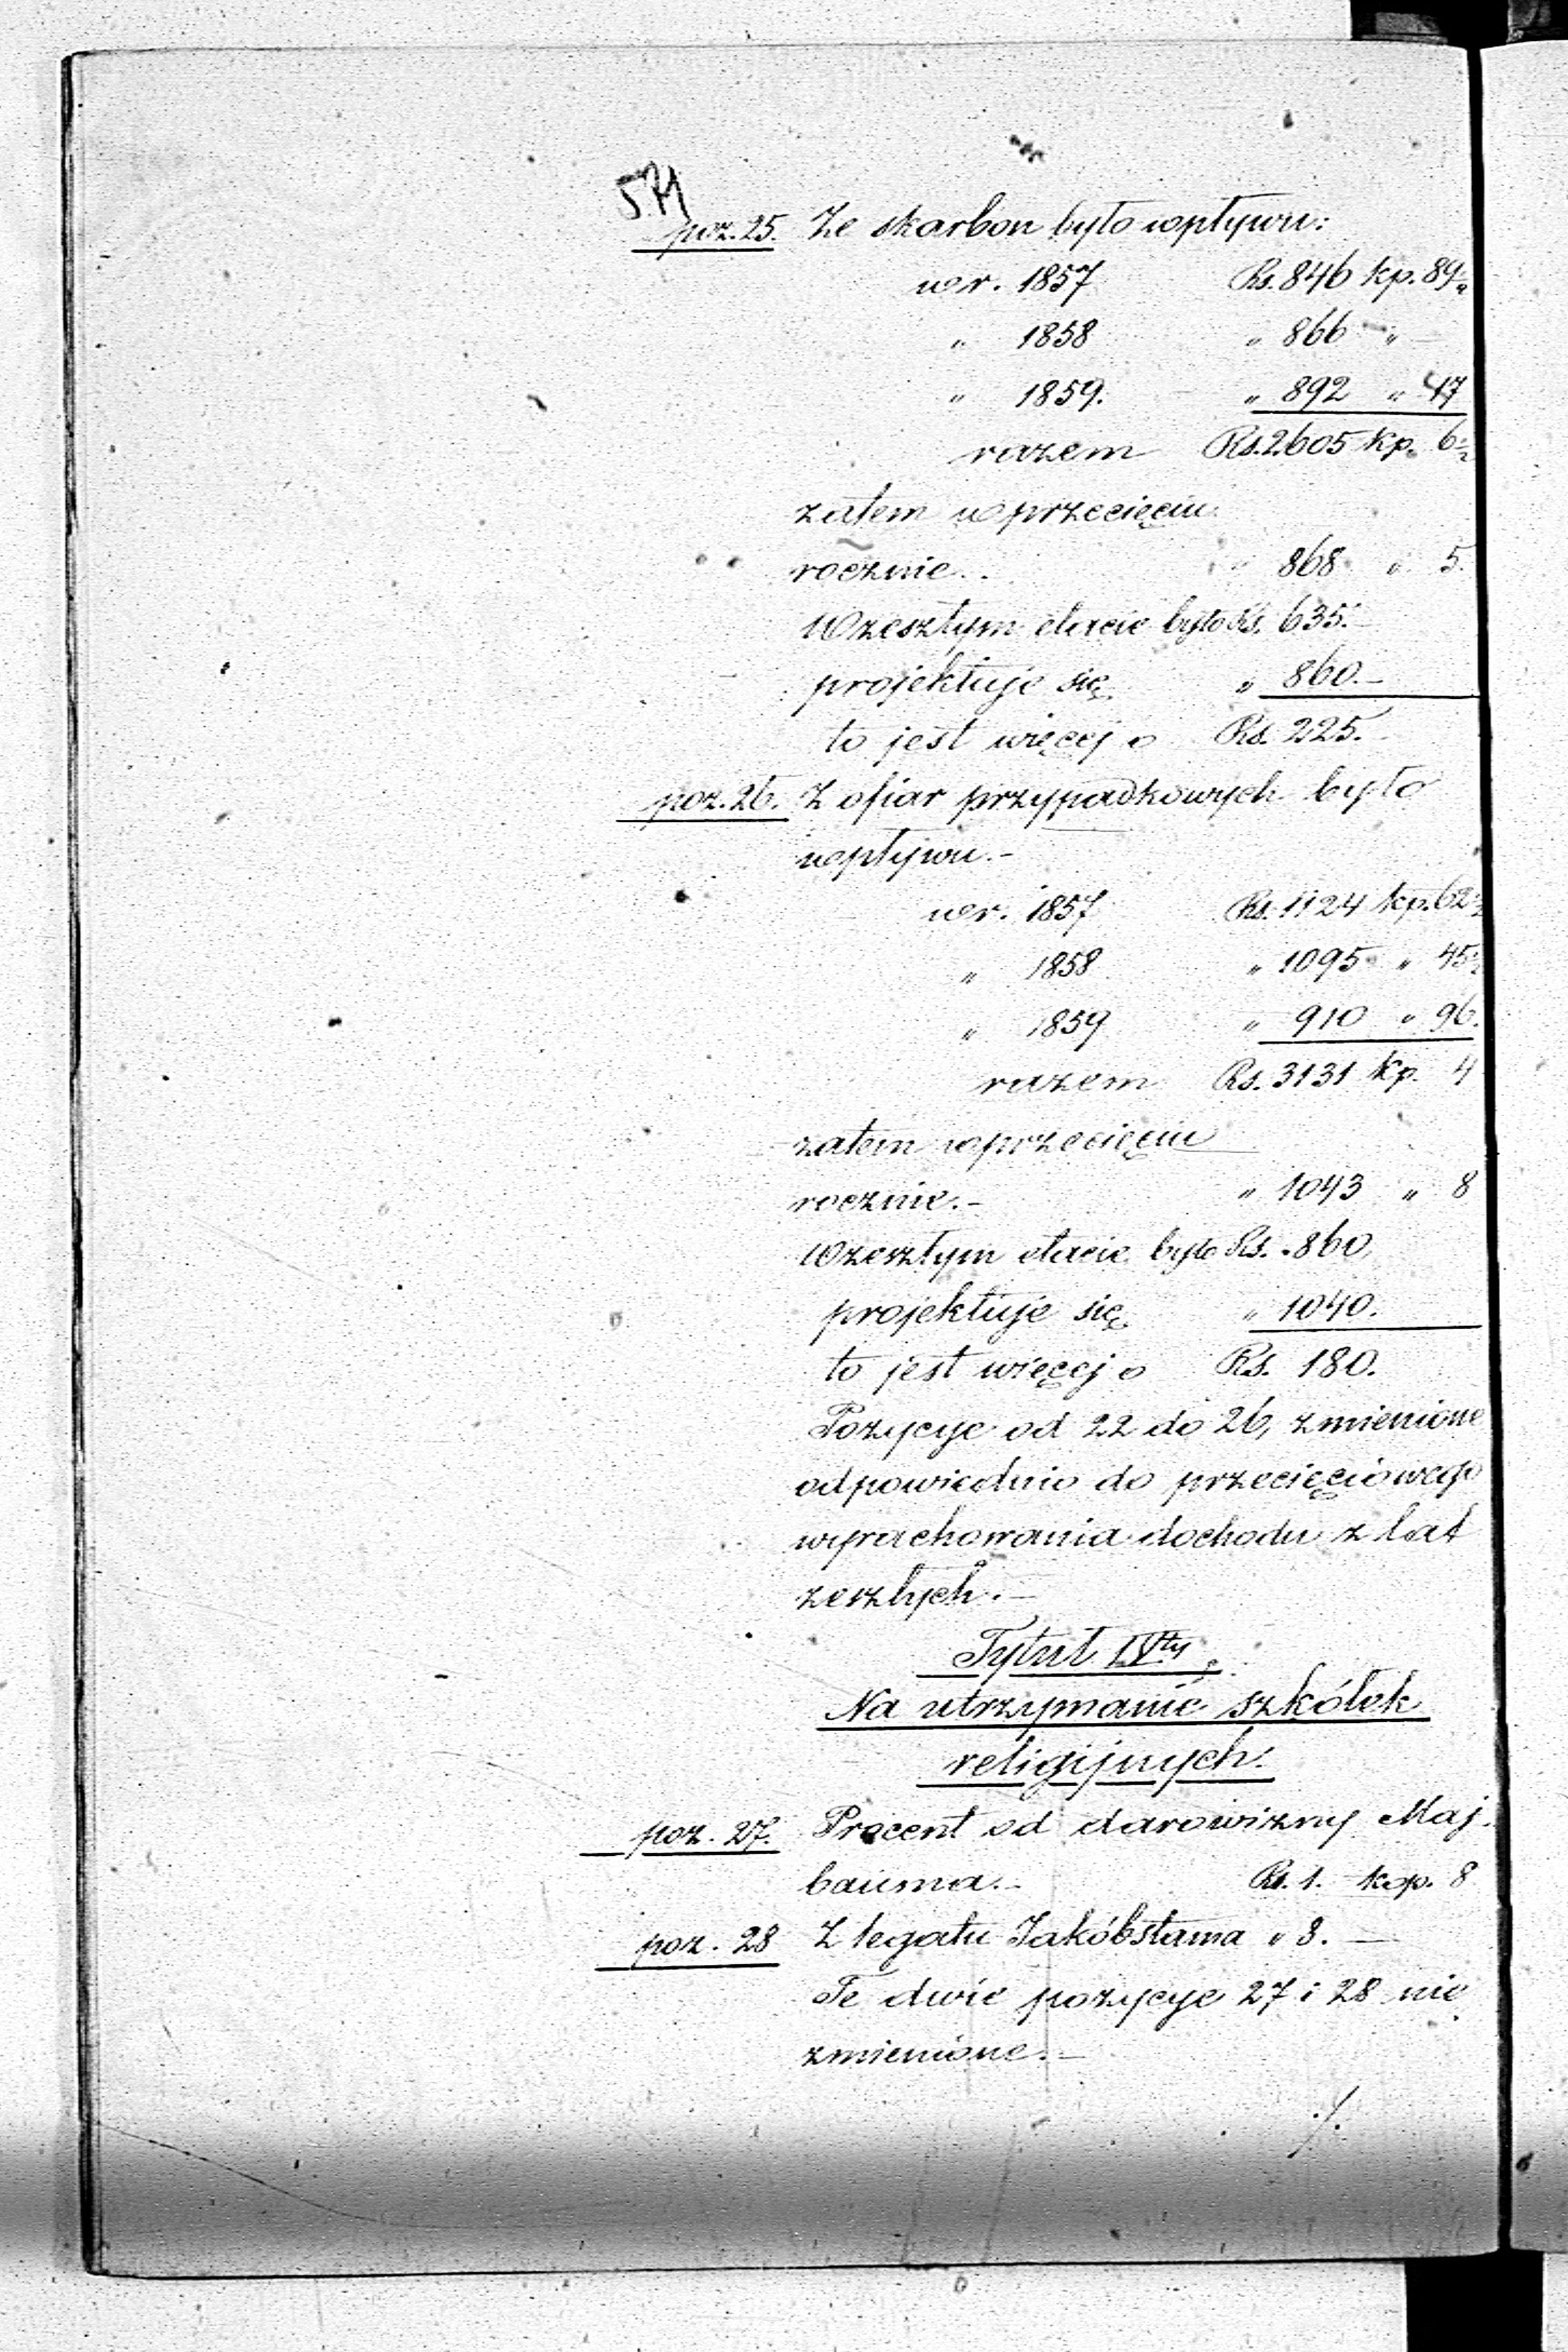 571
poz. 25. Ze skarbon było wpływu:
w r. 1857 Rs. 846 kp. 89½
" 1858 " 866 " —
" 1859. " 892 " 17
razem Rs. 2.605 kp. 6½
zatem w przecięciu
rocznie.. " 868 " 5.
W zeszłym etacie było Rs. 635.—
projektuje się " 860.—
to jest więcej o Rs. 225.
poz. 26. Z ofiar przypadkowych było
wpływu.—
w r. 1857 Rs. 1124 kp. 62½
" 1858 " 1095 " 45½
" 1859 " 910 " 96.
razem Rs. 3131 kp. 4
zatem w przecięciu
rocznie.— " 1043 " 8
W zeszłym etacie było Rs. 860,
projektuje się " 1040.
to jest więcej o Rs. 180.
Pozycye od 22 do 26, zmienione
odpowiednio do przecięciowego
wyrachowania dochodu z lat
zeszłych.—
Tytuł IVty
Na utrzymanie szkółek
religijnych.
poz. 27. Procent od darowizny Maj-
bauma.— Rs. 1. kop. 8
poz. 28 Z legatu Jakóbstama " 8. —
Te dwie pozycye 27 i 28 nie
zmienione.—
./.